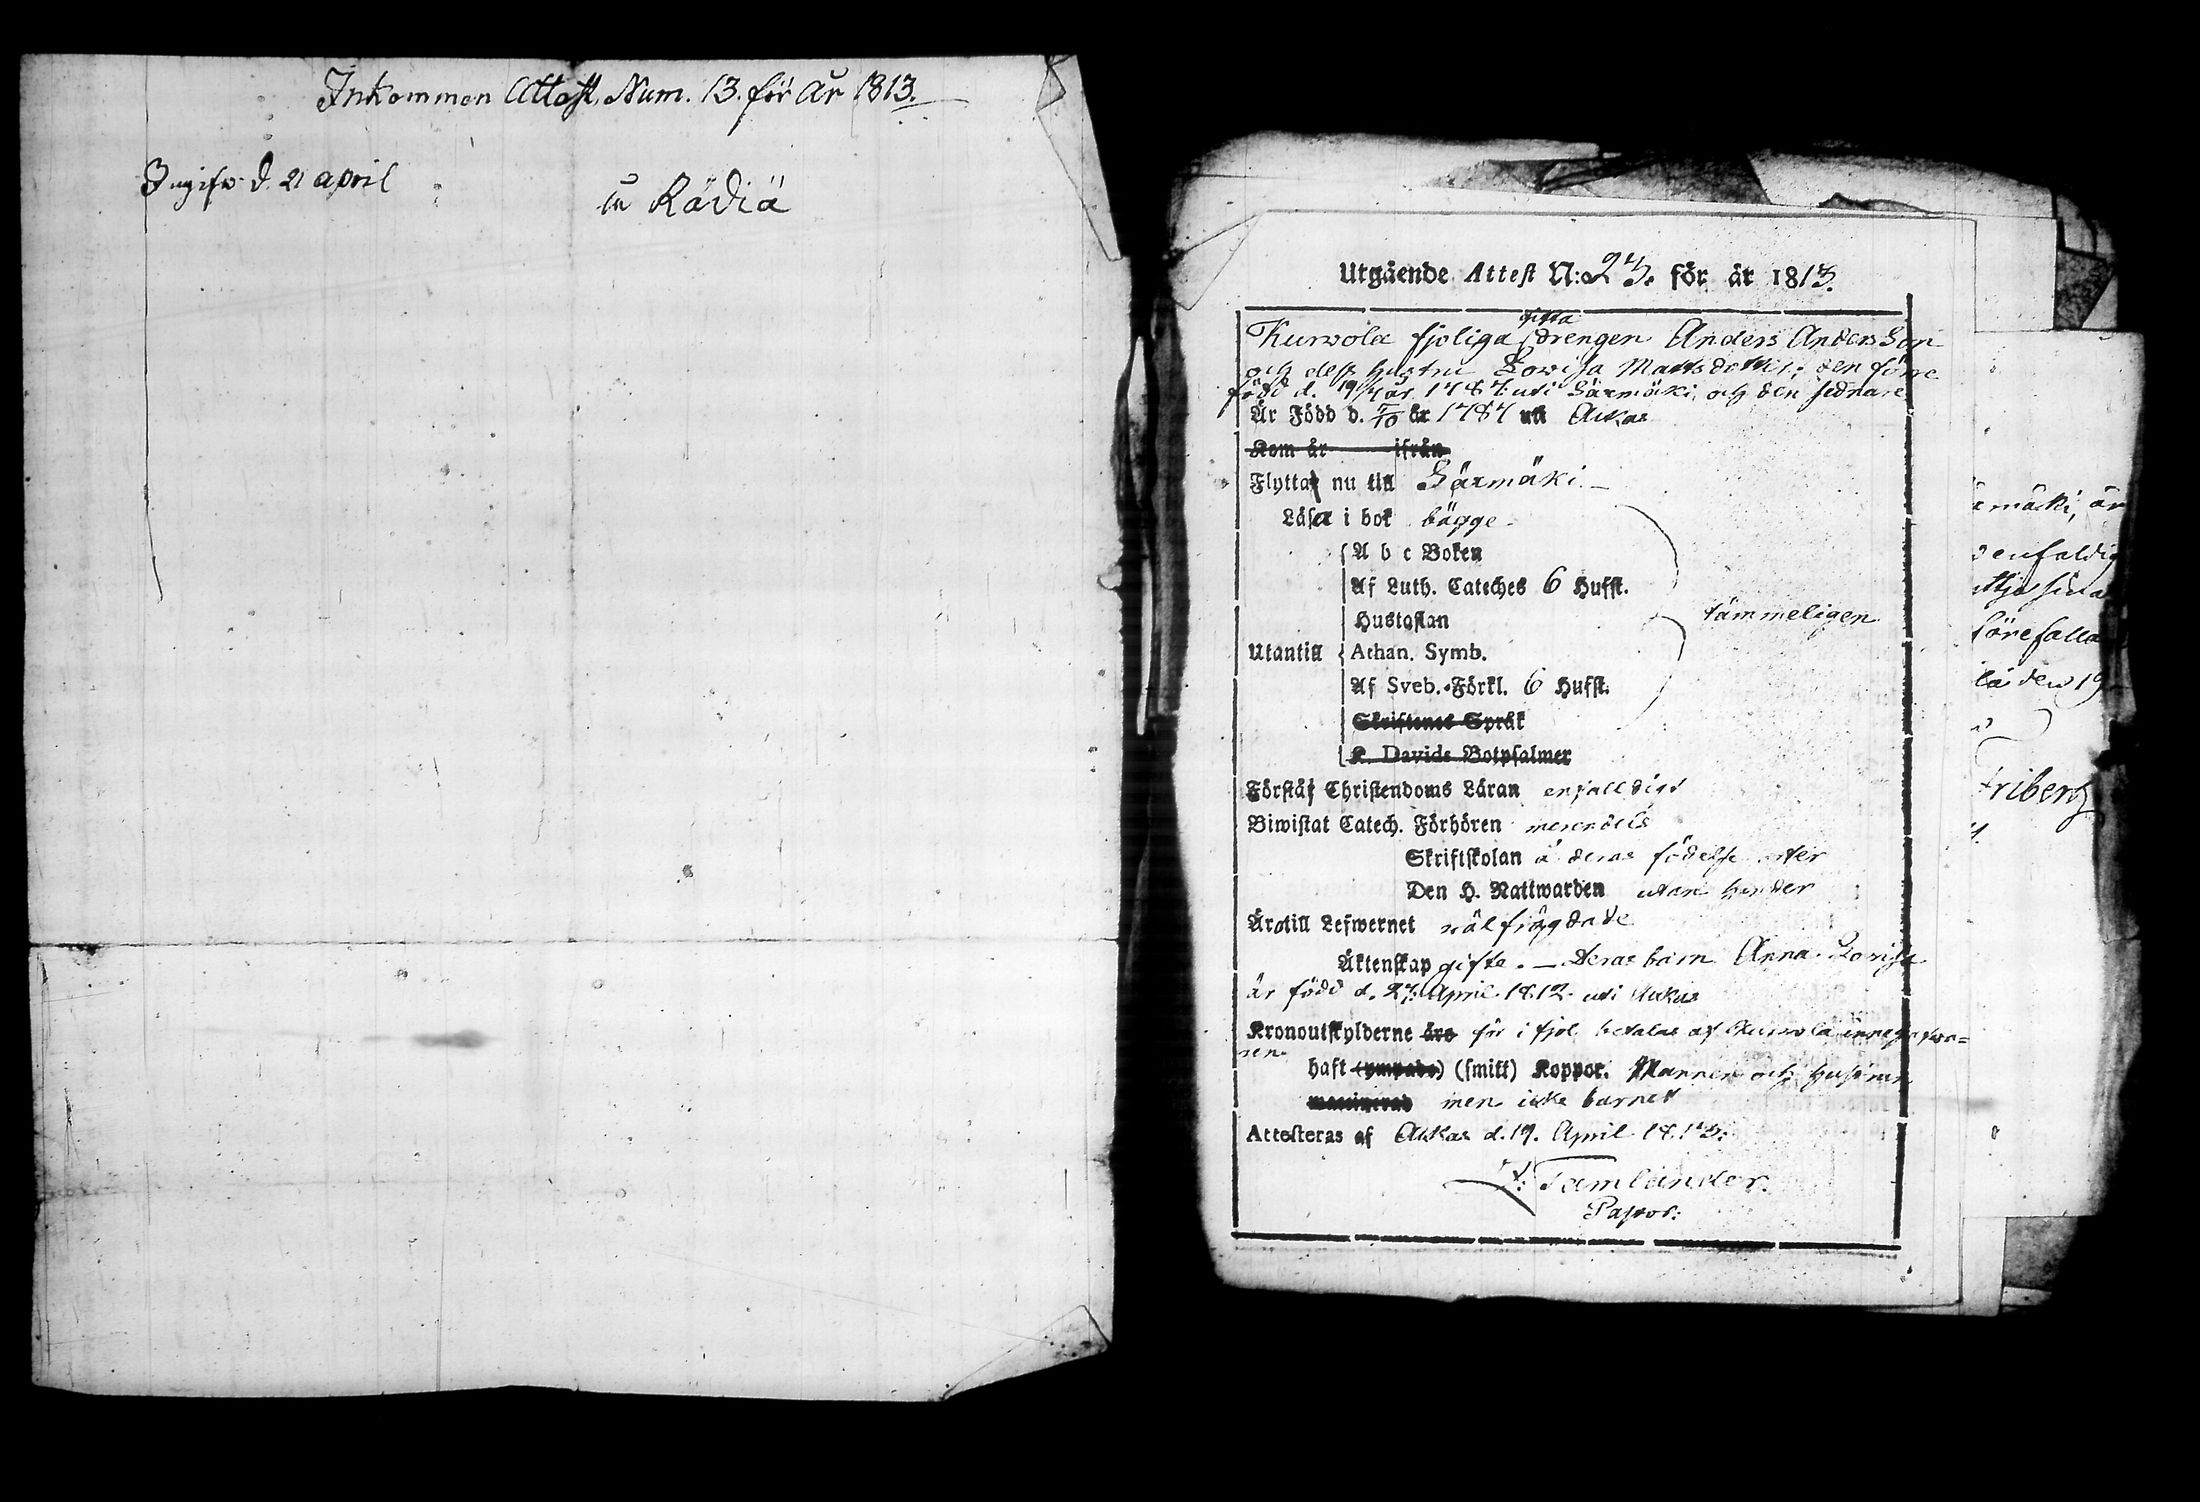 Inkommen Attest. Num. 13. för år 1813.
Ingifv. d. 21 april
Rädiä
Utgående Attest N: 23. för år 1813.
gifta
Kurvola fjoliga drengen Anders Andersson
och dess hustru Lovisa Mattsdotter; den förre
född d. 19/4 år 1787. uti Säxmäki, och den sednare
Är Född d. år 1787 uti Ackas
Kom år ifrån
Flytta nu till Säxmäki.
Läsa i bok bägge.
A b c Boken
Af Luth. Cateches 6 Hufst.
Hustaflan
tämmeligen
Utantill Athan. Symb.
Af Sveb. Förkl. 6 Hufst.
Skriftenes Språk
K. Davids Botpsalmer
Förstå Christendoms Läran enfalldigt
Biwistat Catech. Förhören merendels
Skriftskolan å deras födelse orter
Den H. Nattwarden utan hinder
Äro till Lefwernet välfrägdade
Äktenskap gifte. — Deras barn Anna Lovisa
är född d. 27. April 1812. uti Ackas
Kronoutskylderne äro för i fjol betalas af Kurvola
haft (ympade) (smitt) Koppor. Mannen och hustrun
men icke barnet
Attesteras af Ackas d. 19. April 1813.
Tamlander.
Pastor.
mäki, är
enfaldig
förefalla
den 19
Friberg